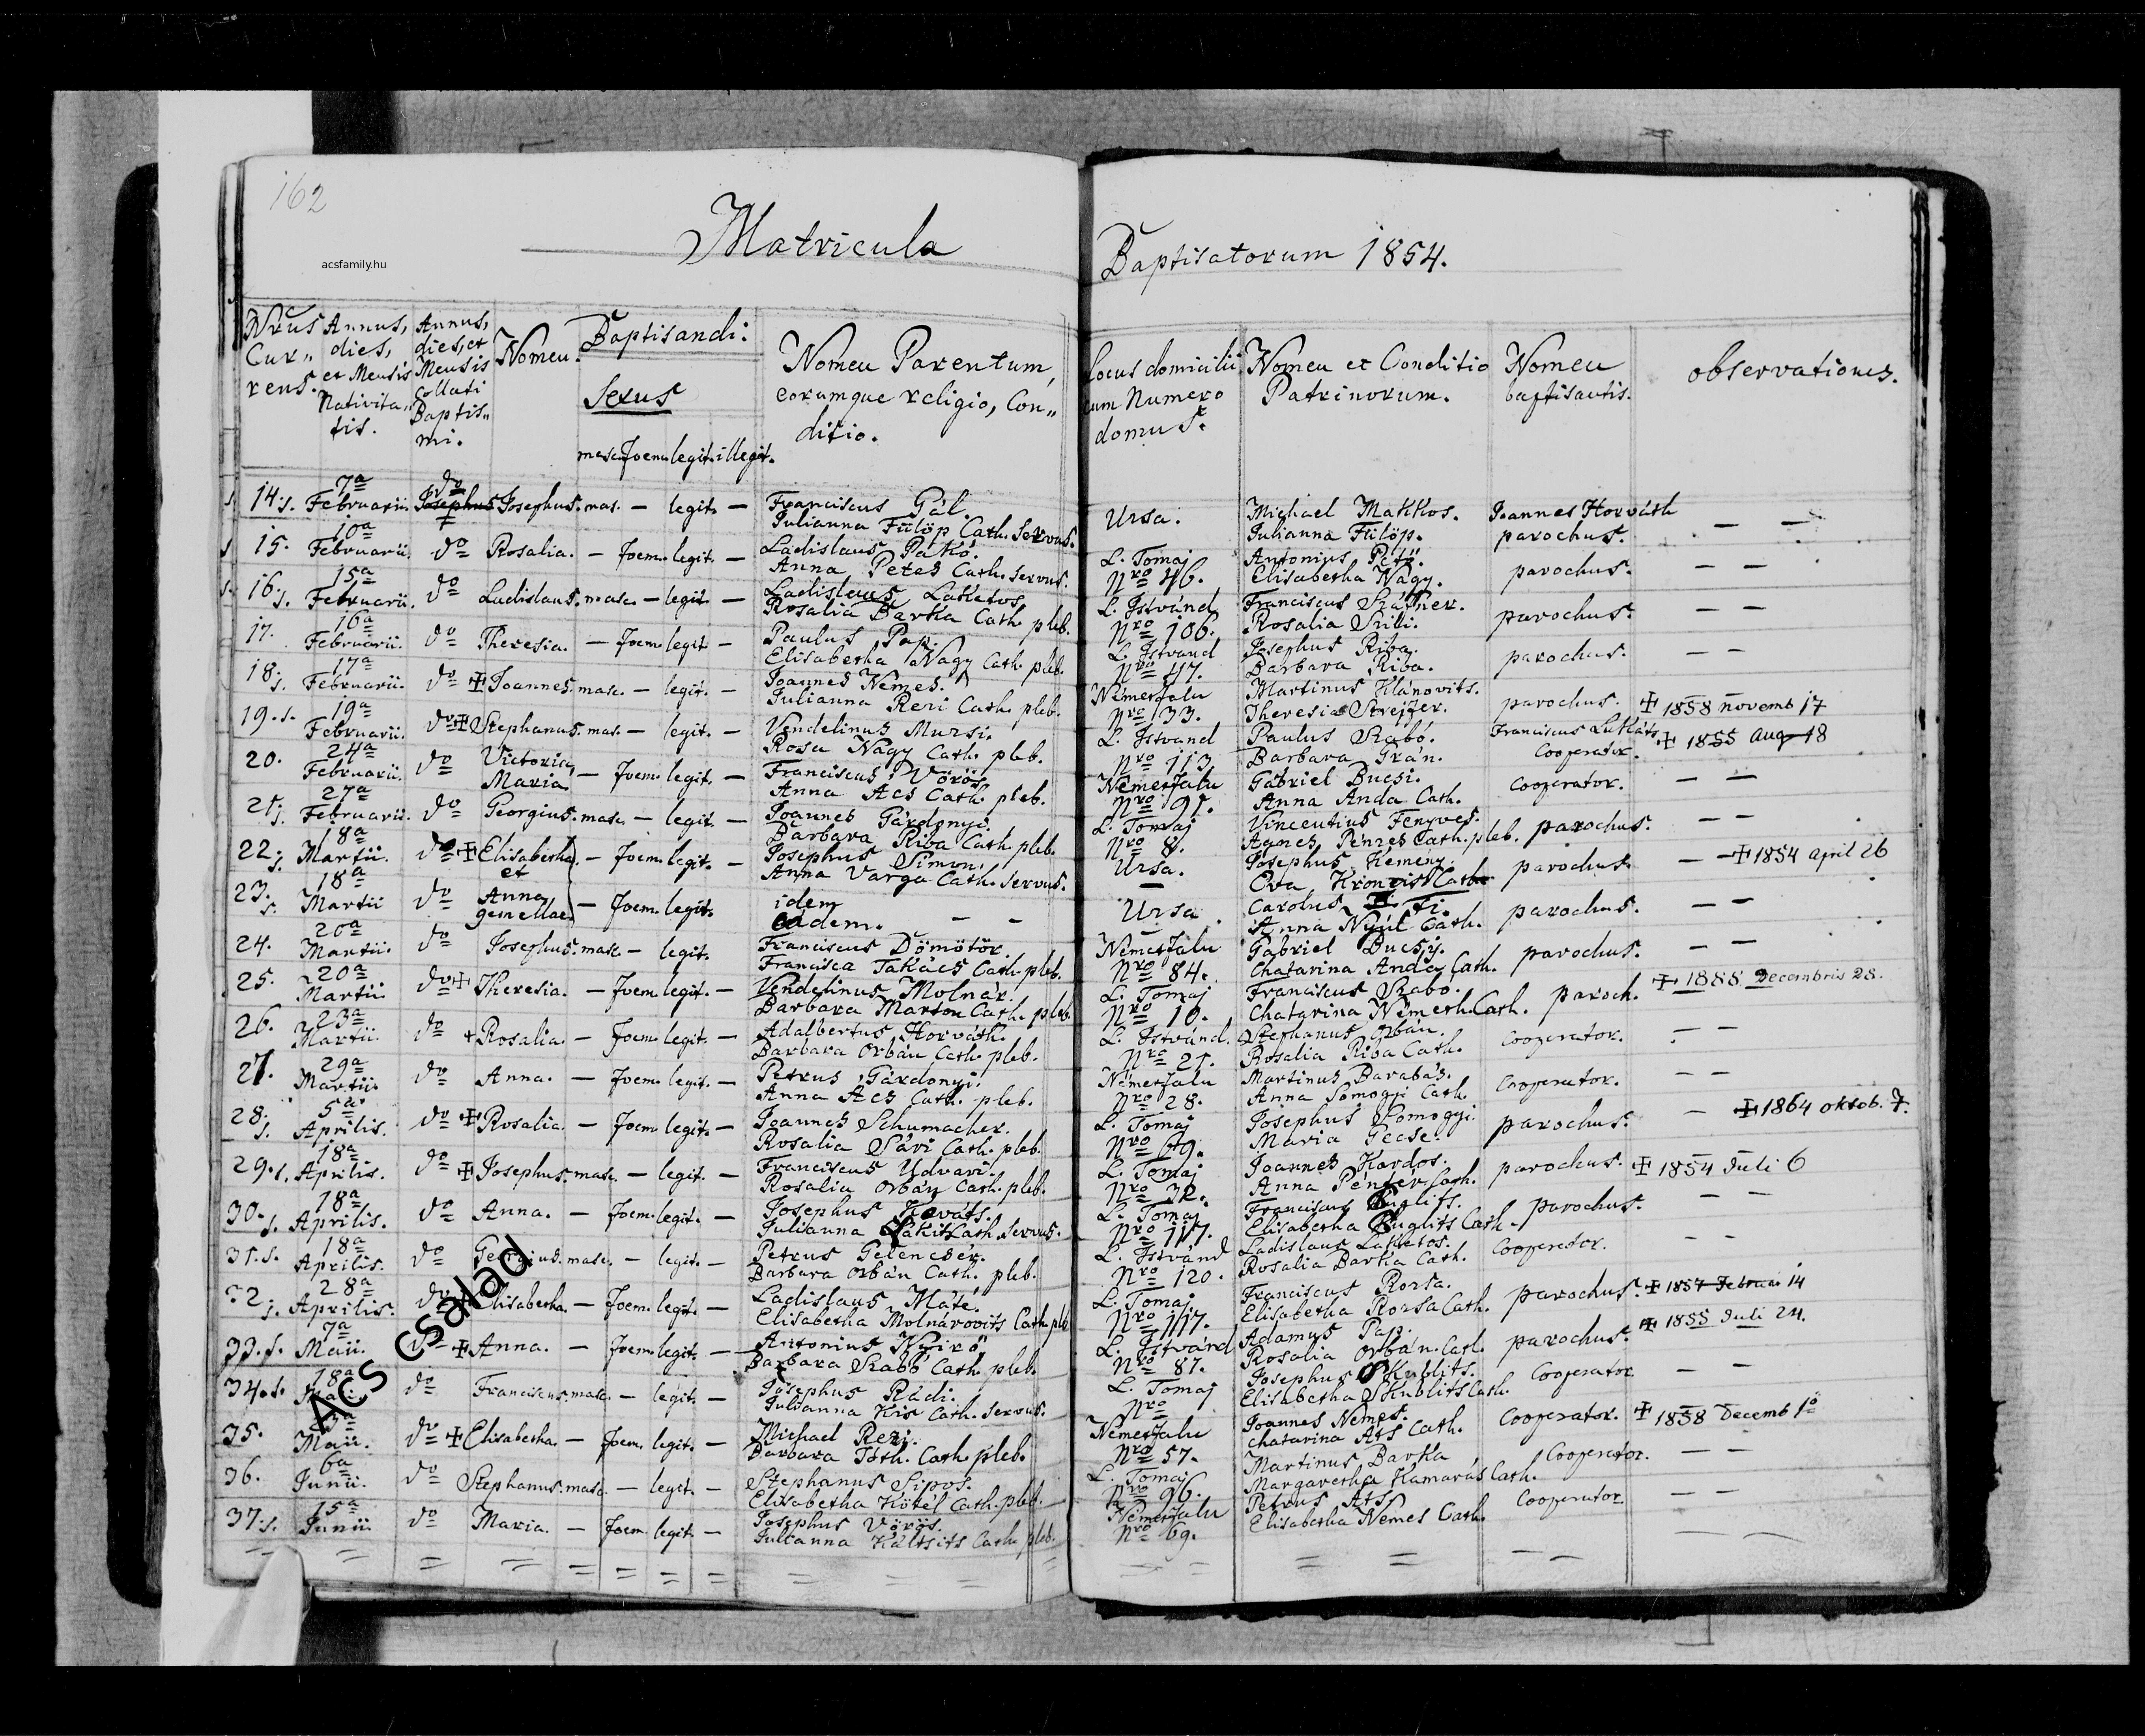 162
acsfamily.hu
Matricula
Baptisatorum 1854.
Nrus Currens.
Annus, dies, et Mensis Nativitatis.
Annus, dies, et Mensis collati Baptismi.
Nomen.
Baptisandi:
Sexus
masc. foem. legit. illegit.
Nomen Parentum, eorumque religio, Conditio.
Locus domicilii cum Numero domus.
Nomen et Conditio Patrinorum.
Nomen baptisantis.
observationes.
14. s. 7a Februarii. do Josephus. mas. — legit. — Franciscus Gál. Julianna Fülöp Cath. servus. Ursa. Michael Makkos. Julianna Fülöp. Joannes Horváth parochus. — —
15. 10a Februarii. do Rosalia. — foem. legit. — Ladislaus Pakó. Anna Petes Cath. servus. L. Tomaj Nro 46. Antonius Pető. Elisabetha Nagy. parochus. — —
16. s. 15a Februarii. do Ladislaus. masc. — legit. — Ladislaus Lakatos Rosalia Barka Cath. pleb. L. Istvánd Nro 106. Franciscus Rosalia parochus. — —
17. 16a Februarii. do Theresia. — foem. legit — Paulus Pap. Elisabetha Nagy Cath. pleb. L. Istvand Nro 47. Josephus Riba. Barbara Riba. parochus. — —
18. s. 17a Februarii. do ✠ Joannes. masc. — legit. — Joannes Nemes. Julianna Rezi Cath. pleb. Nemesfalu Nro 33. Martinus Klánovits. Theresia parochus. ✠ 1858 novemb 17
19. s. 19a Februarii. do ✠ Stephanus. mas. — legit. — Vendelinus Mursi. Rosa Nagy Cath. pleb. L. Istvand Nro 113. Paulus Szabó. Barbara Grán. Franciscus Lukáts Cooperator. ✠ 1855 Aug 18
20. 24a Februarii. do Victoria, Maria — foem. legit. — Franciscus Vörös Anna Acs Cath. pleb. Nemesfalu Nro 91. Gabriel Bucsi. Anna Anda Cath. Cooperator. — —
21. s. 27a Februarii. do Georgius. masc. — legit. — Joannes Gárdonyi. Barbara Riba Cath. pleb. L. Tomaj Nro 8. Vincentius Fenyves. Agnes Pénzes Cath. pleb. parochus. — —
22. s. 18a Martii. do ✠ Elisabetha et — foem. legit. — Josephus Simon. Anna Varga Cath. servus. Ursa. — Josephus Kemény. Eva parochus. — — ✠ 1854 April 26
23. s. 18a Martii do Anna, gemellae. — foem. legit. idem eadem. — — Ursa. Carolus Anna Nyúl Cath. parochus. — —
24. 20a Martii. do Josephus. masc. — legit. Franciscus Dömötör. Francisca Takács Cath. pleb. Nemesfalu Nro 84. Gabriel Bucsy. Chatarina Anda Cath. parochus. — —
25. 20a Martii do ✠ Theresia. — foem. legit. — Vendelinus Molnár. Barbara Marton Cath. pleb. L. Tomaj Nro 10. Franciscus Szabo. Chatarina Németh Cath. paroch. ✠ 1888 Decembris 28.
26. 23a Martii. do + Rosalia. — foem. legit. — Adalbertus Horváth. Barbara Orbán Cath. pleb. L. Istvánd. Nro 21. Stephanus Orbán. Rosalia Riba Cath. Cooperator. — —
27. 29a Martii. do Anna. — foem. legit. — Petrus Gárdonyi. Anna Acs Cath. pleb. Nemesfalu Nro 28. Martinus Barabás. Anna Somogyi Cath. Cooperator. — —
28. s. 5a Aprilis. do ✠ Rosalia. — foem. legit. — Joannes Schumacher. Rosalia Sári Cath. pleb. L. Tomaj Nro 69. Josephus Somogyi. Maria Gecse. parochus. — ✠ 1864 oktob. 7.
29. s. 18a Aprilis. do ✠ Josephus. masc. — legit. — Franciscus Udvari. Rosalia Orbán Cath. pleb. L. Tomaj Nro 32. Joannes Kardos. Anna Cath. parochus. ✠ 1854 Juli 6
30. s. 18a Aprilis. do Anna. — foem. legit. — Josephus Kováts. Julianna Cath. servus. L. Tomaj Nro 117. Franciscus Elisabetha Cath. parochus. — —
31. s. 18a Aprilis. do Georgius. masc. — legit. — Petrus Gelencsér. Barbara Orbán Cath. pleb. L. Istvánd Nro 120. Ladislaus Lakatos. Rosalia Barka Cath. Cooperator. — —
32. s. 28a Aprilis. do Elisabetha. — foem. legit. — Ladislaus Máté. Elisabetha Molnárovits Cath. pleb L. Tomaj. Nro 117. Franciscus Rorsa. Elisabetha Rorsa Cath. parochus. ✠ 1857 Februar 14
33. s. 7a Maii. ✠ Anna. — foem. legit. — Antonius Nyirő. Barbara Szabó Cath. pleb. L. Istvánd Nro 87. Adamus Pap. Rosalia Orbán Cath. parochus. ✠ 1855 Juli 24.
34. s. 18a Maii. do Franciscus. masc. — legit. — Josephus Rádi. Julianna Kis Cath. servus. L. Tomaj Nro Josephus Skublits. Elisabetha Skublits Cath. Cooperator. — —
35. Maii. do ✠ Elisabetha. — foem. legit. — Michael Rezi. Barbara Tóth. Cath. pleb. Nemesfalu Nro 57. Joannes Nemes. Chatarina Ats Cath. Cooperator. ✠ 1858 Decemb 10
36. 6a Junii. do Stephanus. masc. — legit. — Stephanus Sipos. Elisabetha Kötél Cath. pleb. L. Tomaj Nro 96. Martinus Barka Margaretha Kamarás Cath. Cooperator. — —
37. s. 15a Junii. do Maria. — foem. legit. — Josephus Vörös. Julianna Káltsits Cath. pleb. Nemesfalu Nro 69. Petrus Ats. Elisabetha Nemes Cath. Cooperator. — —
Acs család